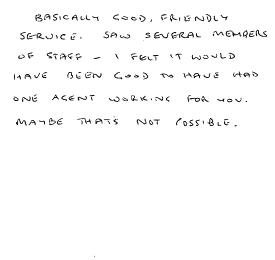 BASICALLY GOOD, FRIENDLY
SERVICE. SAW SEVERAL MEMBERS
OF STAFF - I FELT IT WOULD
HAVE BEEN GOOD TO HAVE HAD
ONE AGENT WORKING FOR YOU.
MAYBE THAT'S NOT POSSIBLE.